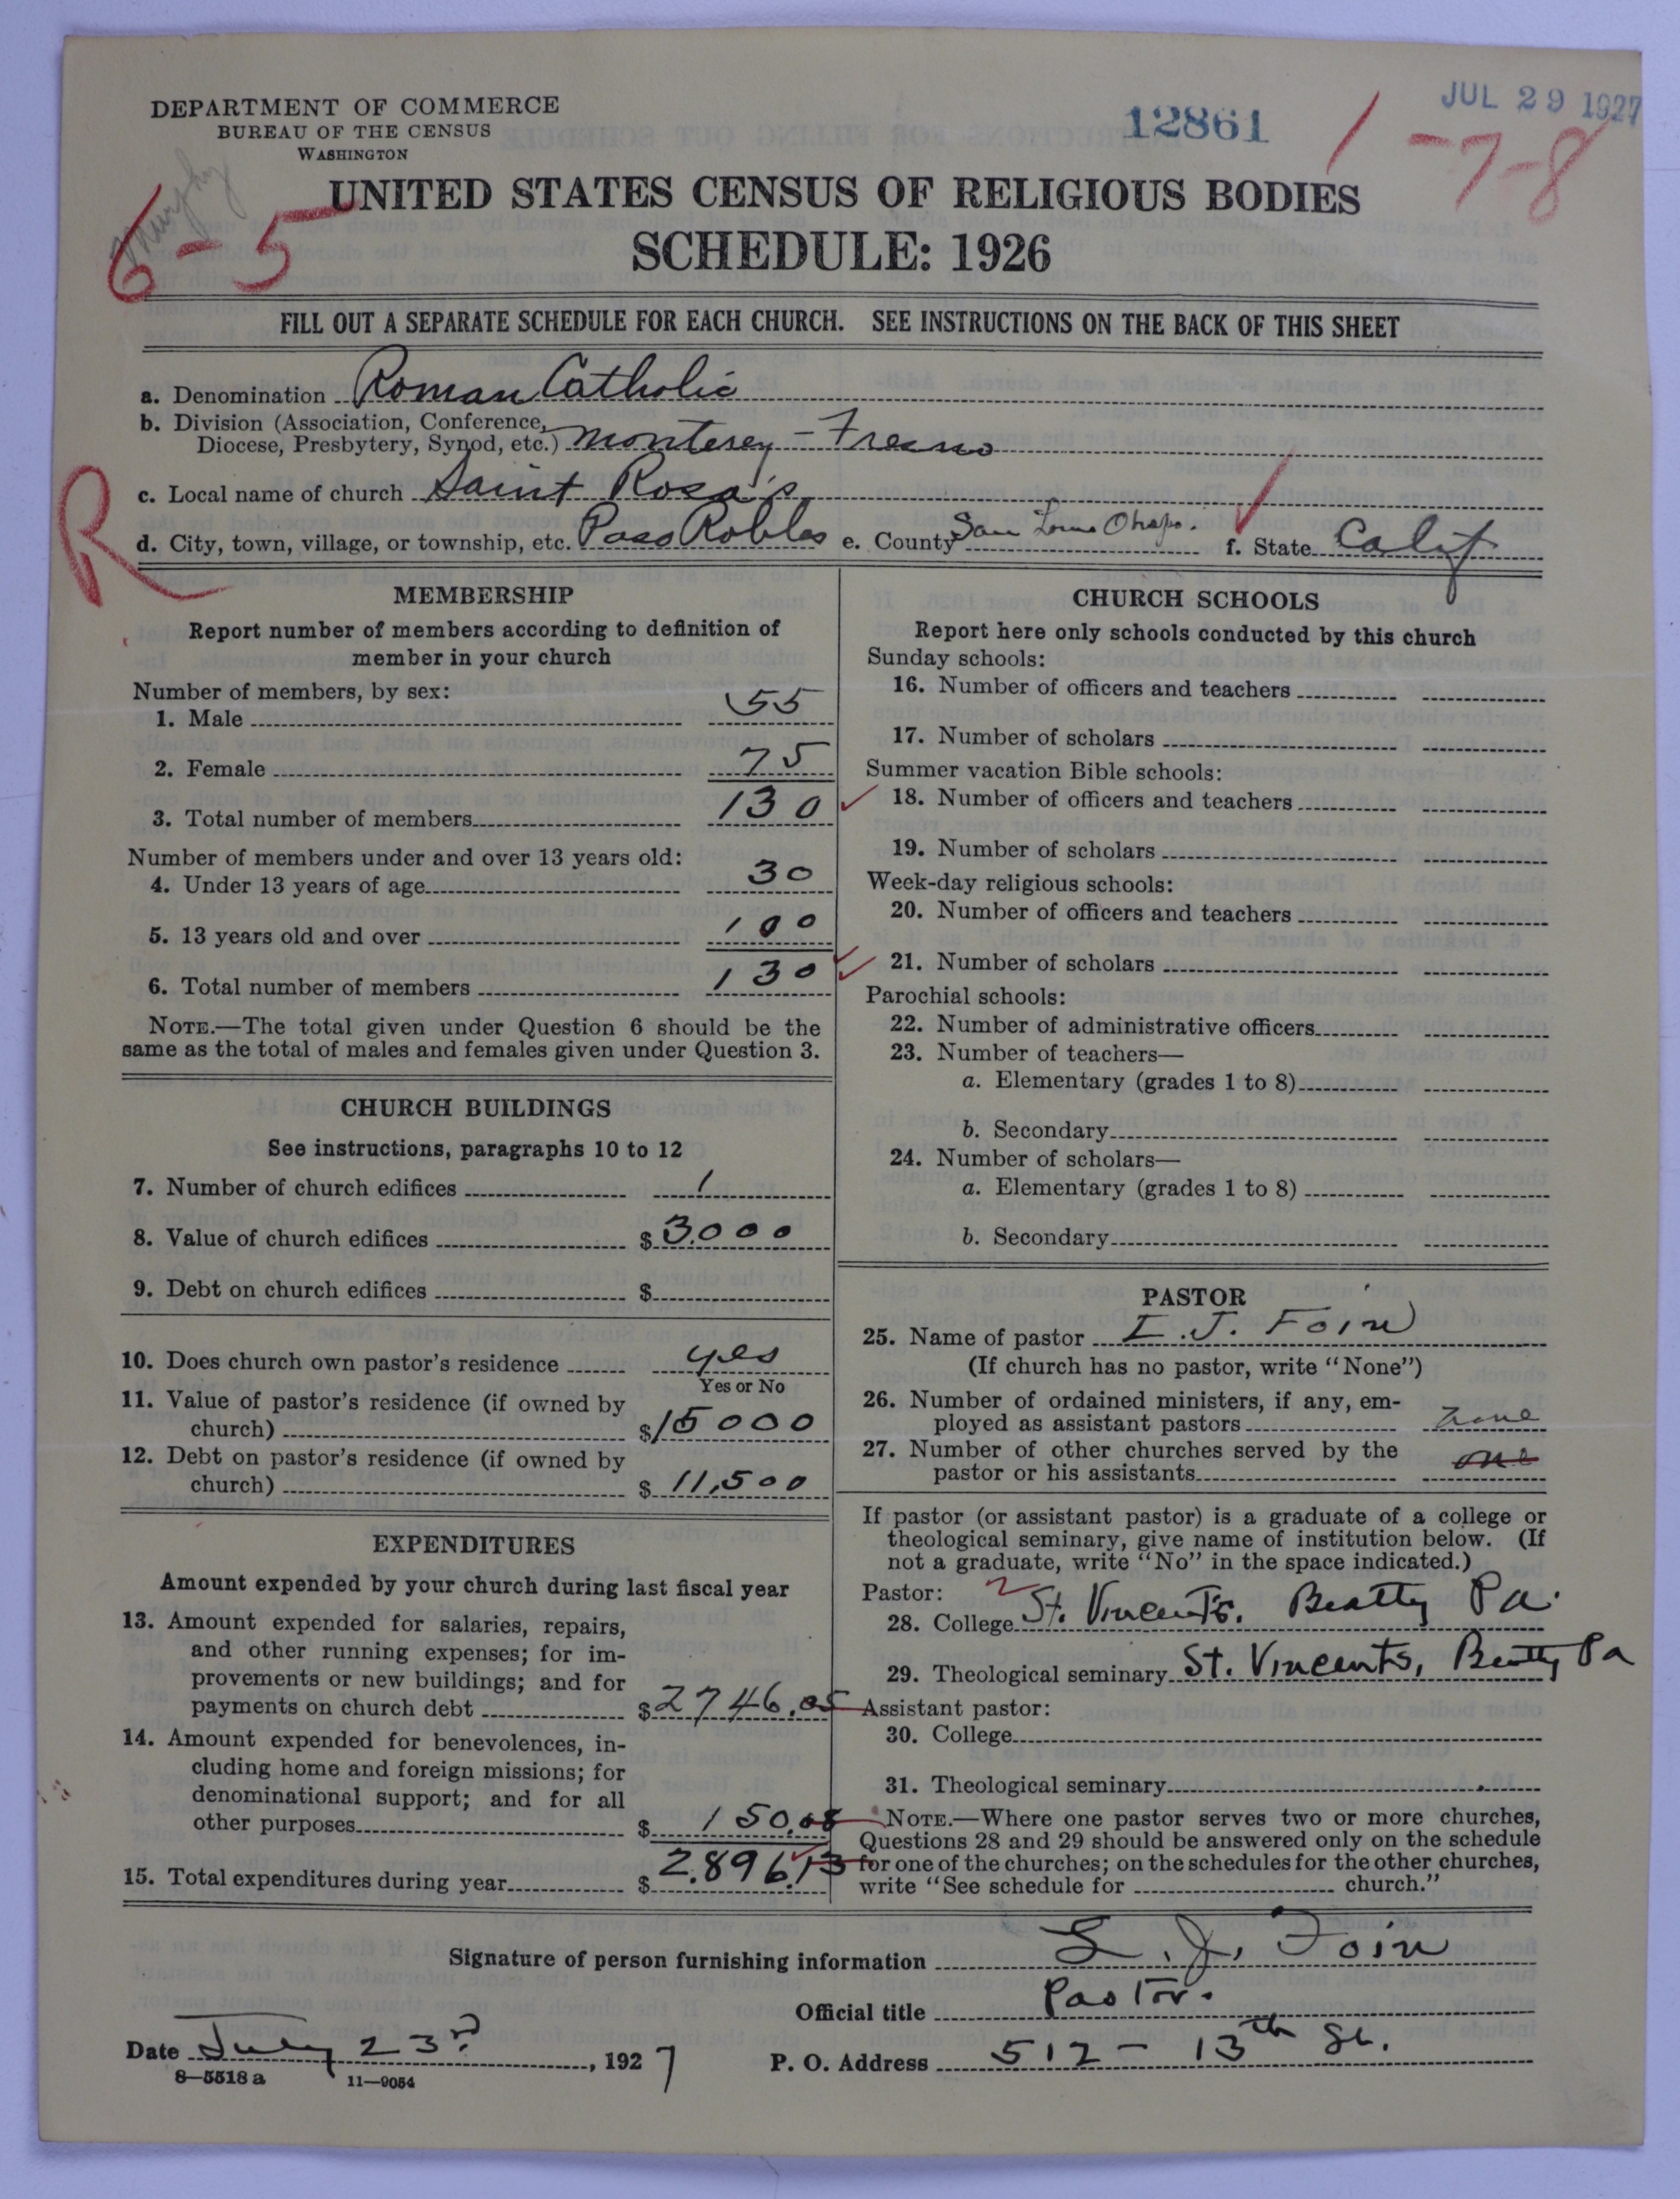 DEPARTMENT OF COMMERCE
BUREAU OF THE CENSUS
WASHINGTON
12861
JUL 29 1927
1-7-8
Murphy
6-5
UNITED STATES CENSUS OF RELIGIOUS BODIES
SCHEDULE: 1926
FILL OUT A SEPARATE SCHEDULE FOR EACH CHURCH. SEE INSTRUCTIONS ON THE BACK OF THIS SHEET
a. Denomination Roman Catholic
b. Division (Association, Conference,
Diocese, Presbytery, Synod, etc.) Monterey - Fresno
R
c. Local name of church Saint Rosa's
d. City, town, village, or township, etc. Paso Robles e. County San Louis Obispo. f. State Calif
MEMBERSHIP
Report number of members according to definition of
member in your church
Number of members, by sex:
1. Male 55
2. Female 75
3. Total number of members 130
Number of members under and over 13 years old:
4. Under 13 years of age 30
5. 13 years old and over 100
6. Total number of members 130
NOTE.—The total given under Question 6 should be the
same as the total of males and females given under Question 3.
CHURCH BUILDINGS
See instructions, paragraphs 10 to 12
7. Number of church edifices 1
8. Value of church edifices $3000
9. Debt on church edifices $
10. Does church own pastor's residence yes
Yes or No
11. Value of pastor's residence (if owned by
church) $15000
12. Debt on pastor's residence (if owned by
church) $11,500
EXPENDITURES
Amount expended by your church during last fiscal year
13. Amount expended for salaries, repairs,
and other running expenses; for im-
provements or new buildings; and for
payments on church debt $2746.05
14. Amount expended for benevolences, in-
cluding home and foreign missions; for
denominational support; and for all
other purposes $150.08
15. Total expenditures during year $2.896.13
CHURCH SCHOOLS
Report here only schools conducted by this church
Sunday schools:
16. Number of officers and teachers
17. Number of scholars
Summer vacation Bible schools:
18. Number of officers and teachers
19. Number of scholars
Week-day religious schools:
20. Number of officers and teachers
21. Number of scholars
Parochial schools:
22. Number of administrative officers
23. Number of teachers—
a. Elementary (grades 1 to 8)
b. Secondary
24. Number of scholars—
a. Elementary (grades 1 to 8)
b. Secondary
PASTOR
25. Name of pastor L. J. Foin
(If church has no pastor, write "None")
26. Number of ordained ministers, if any, em-
ployed as assistant pastors none
27. Number of other churches served by the
pastor or his assistants one
If pastor (or assistant pastor) is a graduate of a college or
theological seminary, give name of institution below. (If
not a graduate, write "No" in the space indicated.)
Pastor:
28. College St. Vincents. Beatty Pa.
29. Theological seminary St. Vincents, Beatty Pa
Assistant pastor:
30. College
31. Theological seminary
NOTE.—Where one pastor serves two or more churches,
Questions 28 and 29 should be answered only on the schedule
for one of the churches; on the schedules for the other churches,
write "See schedule for church."
Signature of person furnishing information L. J. Foin
Official title Pastor.
Date July 23rd, 1927 P. O. Address 512 - 13th St.
8—5518 a 11—9054